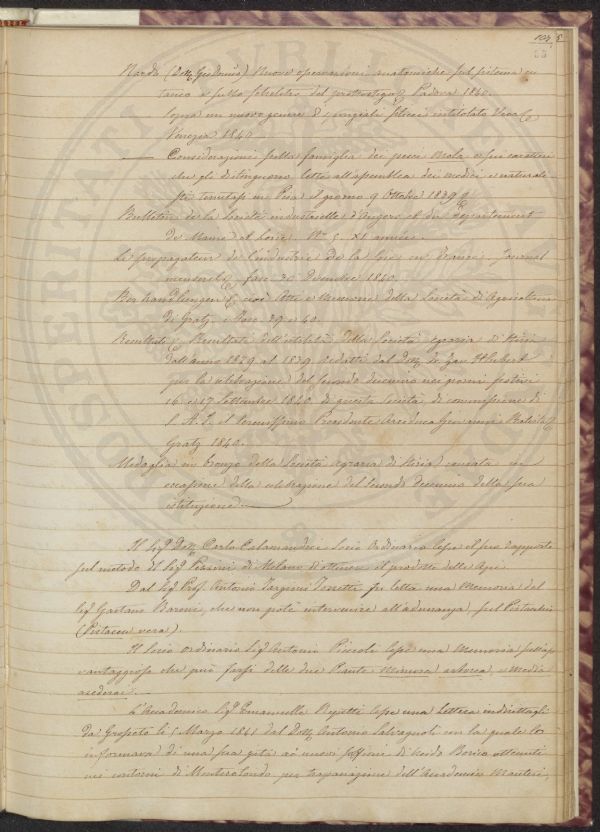 Nardo (Dott. Gio. Domco) Nuove osservazioni anatomiche sul sistema cu
taneo e sullo scheletro del Padova 1840.
sopra un nuovo genere di pesci intitolato
Venezia 1840
—— Considerazioni sulla famiglia dei pesci Mola e sui caratteri
che gli distinguono lette all'assemblea dei medici e naturali-
sti tenutasi in Pisa il giorno 9 Ottobre 1839
Bulletin de la Societé industrielle d'Angers et du departement
de Maine et Loire. No. 5. XI année.
Le propagateur de l'industrie de la Soie en France. Journal
mensuel fasc. 30 Decembre 1840
cioè Atti e memorie della Società di Agricoltura
di Gratz. Fasc. 39 e 40.
Resultati dell'attività della Società agraria di Stiria
dall'anno 1829 al 1839 redatti dal Dott. Hlubek
per la celebrazione del secondo decennio nei giorni festivi
16 e 17 Settembre 1840 di questa Società di commissione di
S. A. I. il Serenissimo Presidente Arciduca Giovanni Batista
Gratz 1840.
Medaglia in bronzo della Società Agraria di Stiria coniata in
occasione della celebrazione del secondo decennio della sua
istituzione.
Il Sigr. Dott. Carlo Calamandrei Socio Ordinario lesse il suo rapporto
sul metodo del Sigr. di Milano di ottenere il prodotto delle Api.
Dal Sigr. Prof. Antonio Targioni Tozzetti fu letta una Memoria del
Sigr. Gaetano Baroni, che non potè intervenire all'adunanza, sul Pistacchio
(Pistacea vera)
Il Socio ordinario Sigr. Antonio Piccioli lesse una memoria sull'uso
vantaggioso che può farsi delle due Piante Mimosa arborea, e Melia
azedarac.
L'Accademico Sigr. Emanuelle Repetti lesse una lettera indirittagli
da Grosseto li 5 Marzo 1841 dal Dott. Antonio Salvagnoli con la quale lo
informava di una sua gita ai nuovi soffioni di Acido Borico ottenuti
nei contorni di Monterotondo per trapanazione dell'Accademico Manteri,